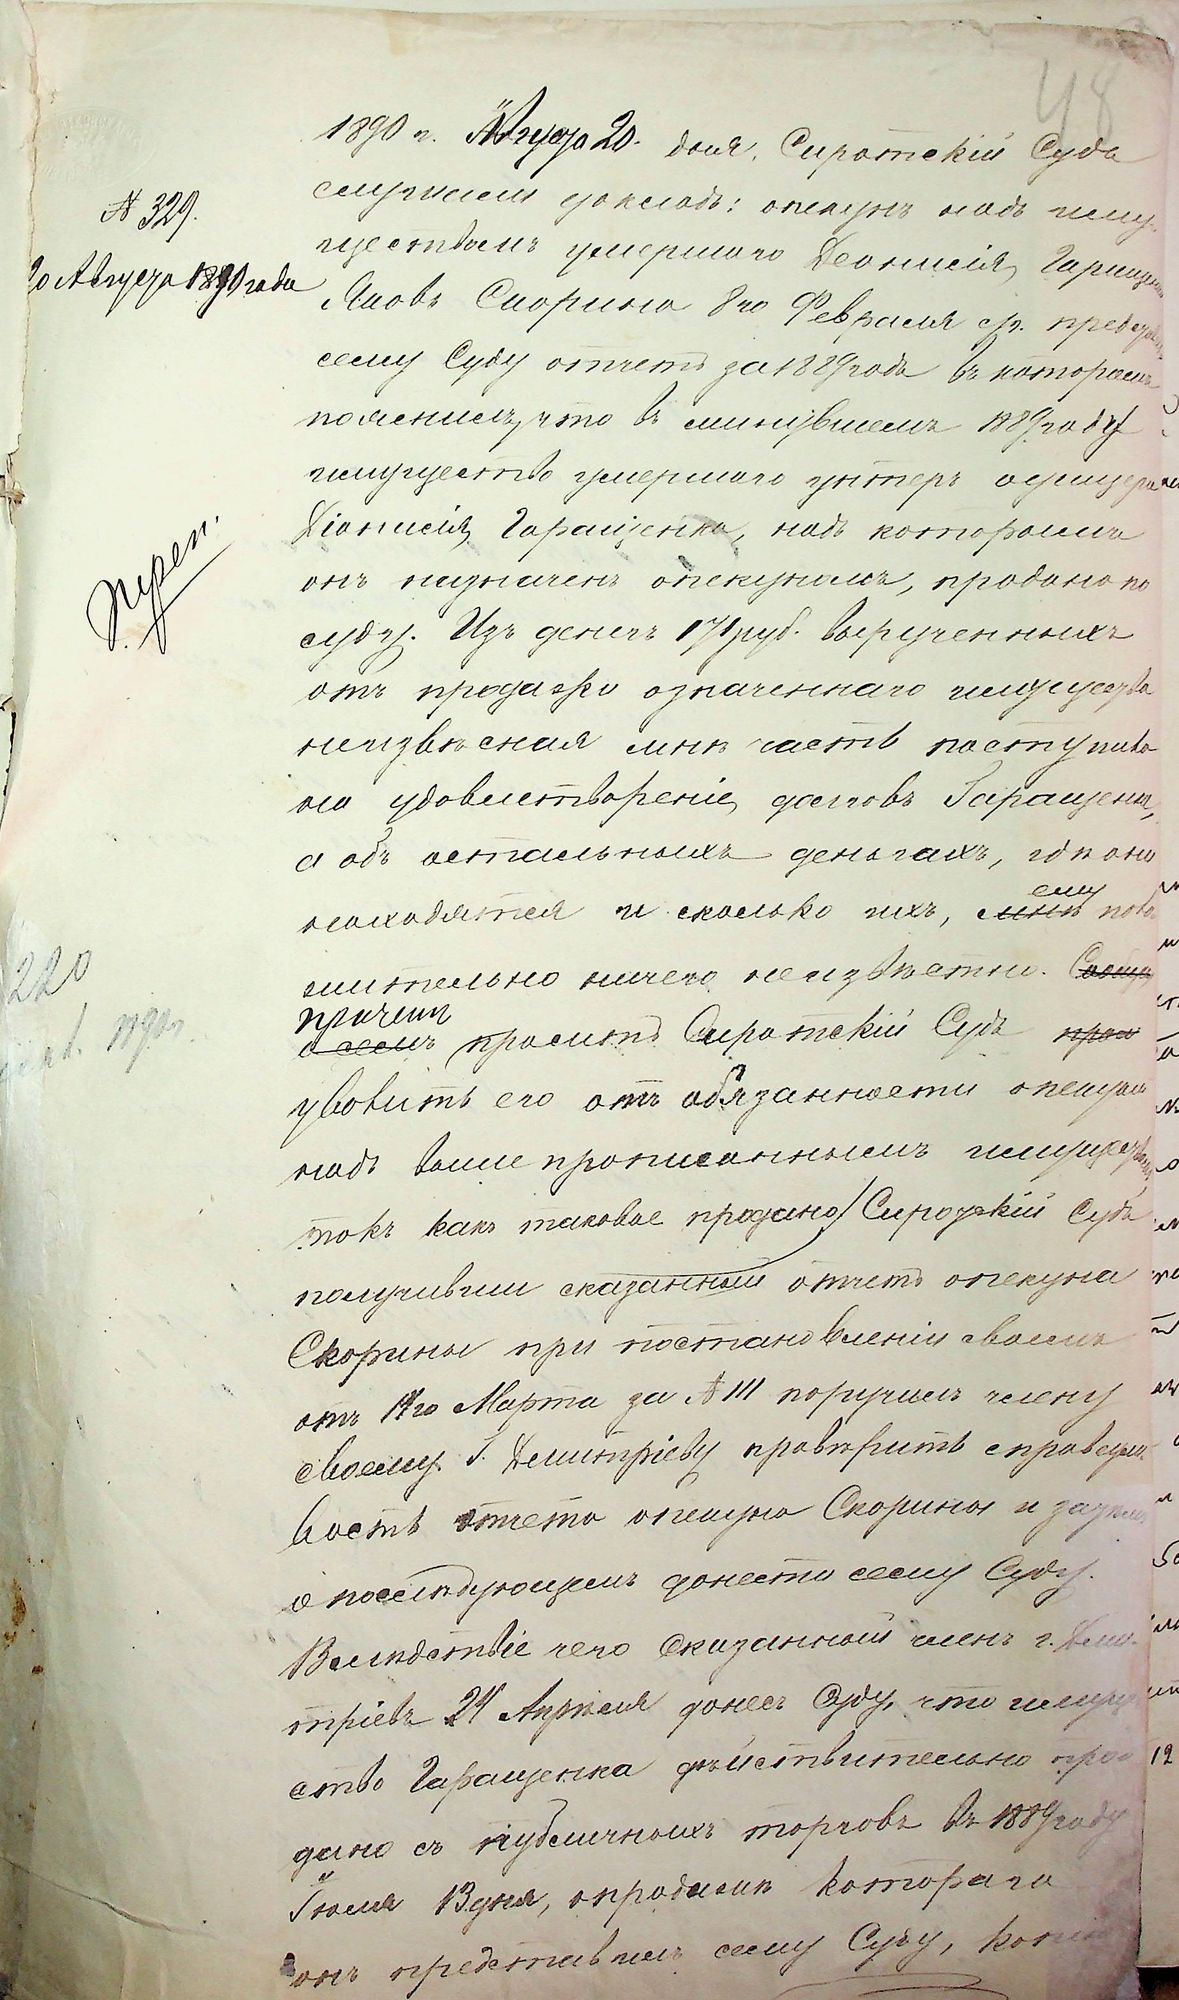 48
1890 г. Августа 20 дня, Сиротскій Судъ
слушали докладъ: опекунъ надъ иму-
ществомъ умершаго Деонисія Гаращенка
Яковъ Скорина 8го Февраля с/г. представ
сему Суду отчетъ за 1889 годъ въ которомъ
пояснилъ, что въ минувшемъ 1889 году
имущество умершаго унтеръ офицера
Діонисія Гаращенка, надъ которымъ
онъ назначенъ опекуномъ, продано по
суду. Изъ денегъ 171 руб. вырученныхъ
отъ продажи означеннаго имущества
неизвѣсная мнѣ часть поступила
на удовлетвореніе долговъ Гаращенка,
а объ остальныхъ деньгахъ, гдѣ они
находятся и сколько ихъ, мнѣ ему поло-
жительно ничего неизвѣстно.
о семъ причемъ проситъ Сиротскій Судъ
уволить его отъ обязанности опекуна
надъ вышепрописаннымъ имуществомъ
такъ какъ таковое продано/ Сиротскій Судъ
получивши сказанный отчетъ опекуна
Скорины при постановленіи своемъ
отъ 14го Марта за № 111 поручилъ члену
своему Г. Дмитріеву провѣрить справедли-
вость отчета опекуна Скорины и
о послѣдующемъ донести сему Суду.
Вслѣдствіе чего сказанный членъ г. Дми-
тріевъ 24 Апрѣля донесъ Суду, что имуще
ство Гаращенка дѣйствительно про
дано съ публичныхъ торговъ въ 1889 году
Іюля 13 дня, о продажѣ котораго
онъ представилъ сему Суду, копію
№ 329.
20 Августа 1890 года
220
1890 г.